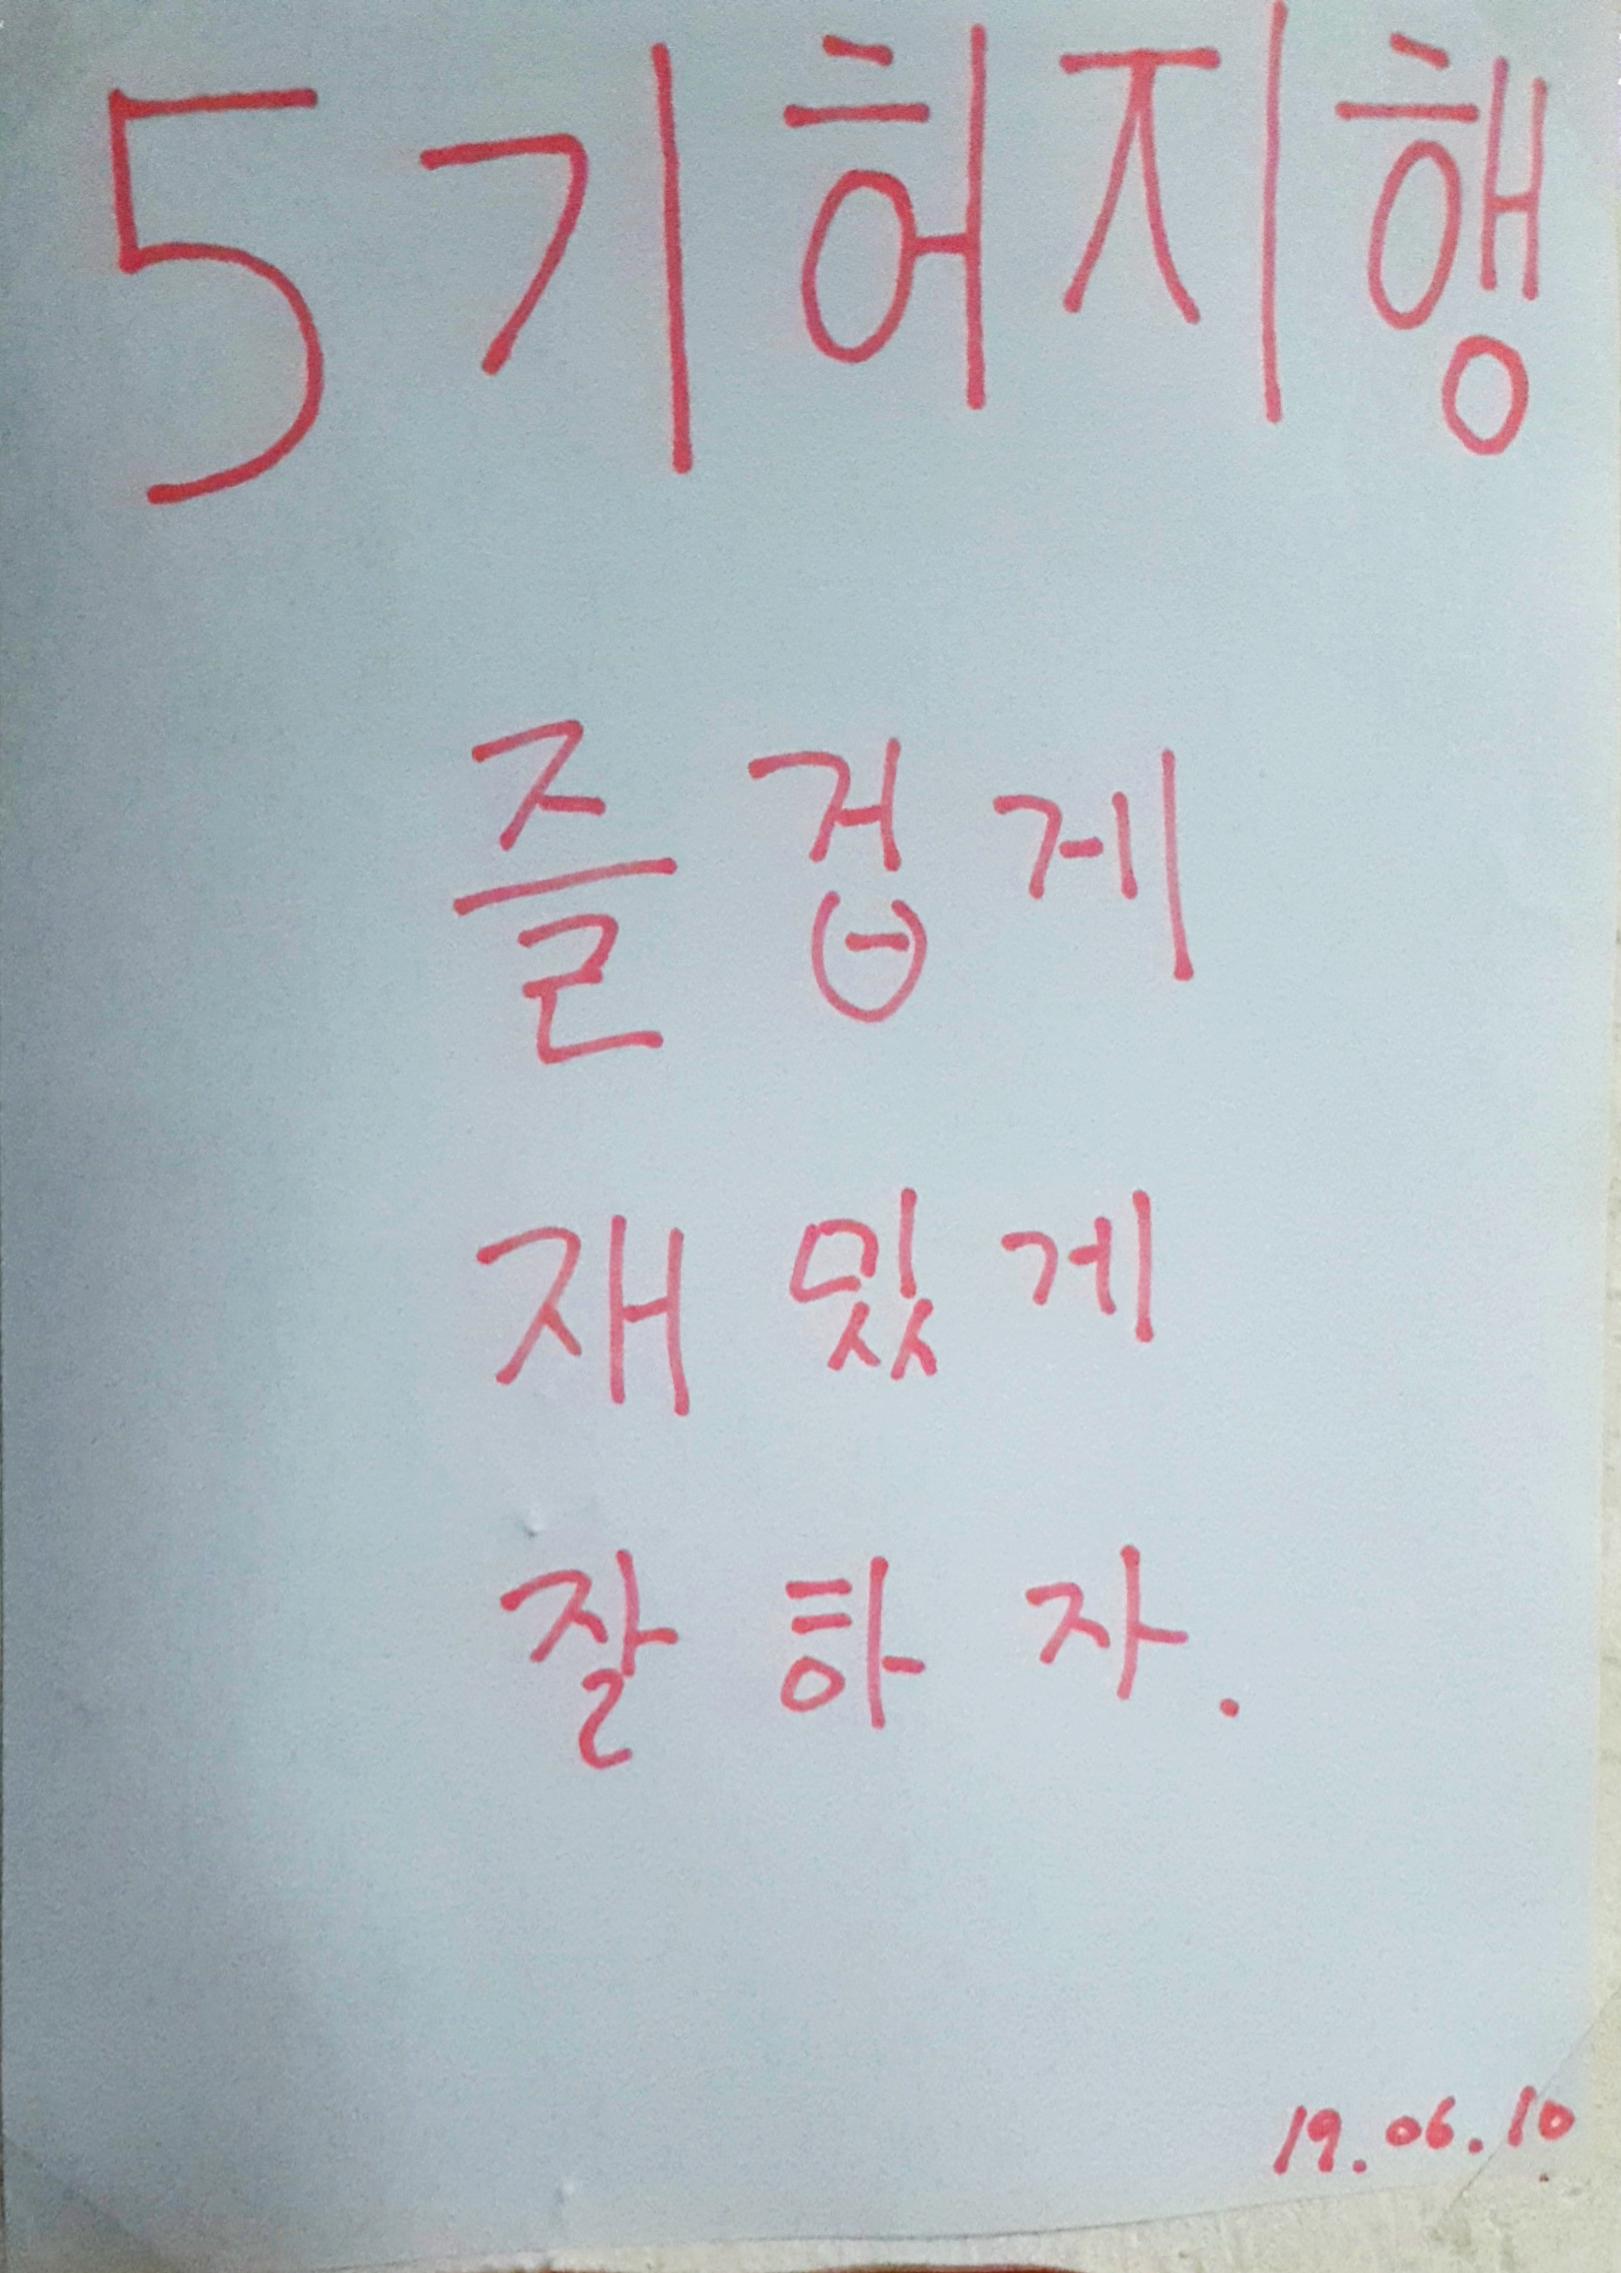 5기허지행
즐겁게
재밌게
잘하자.
19.06.10